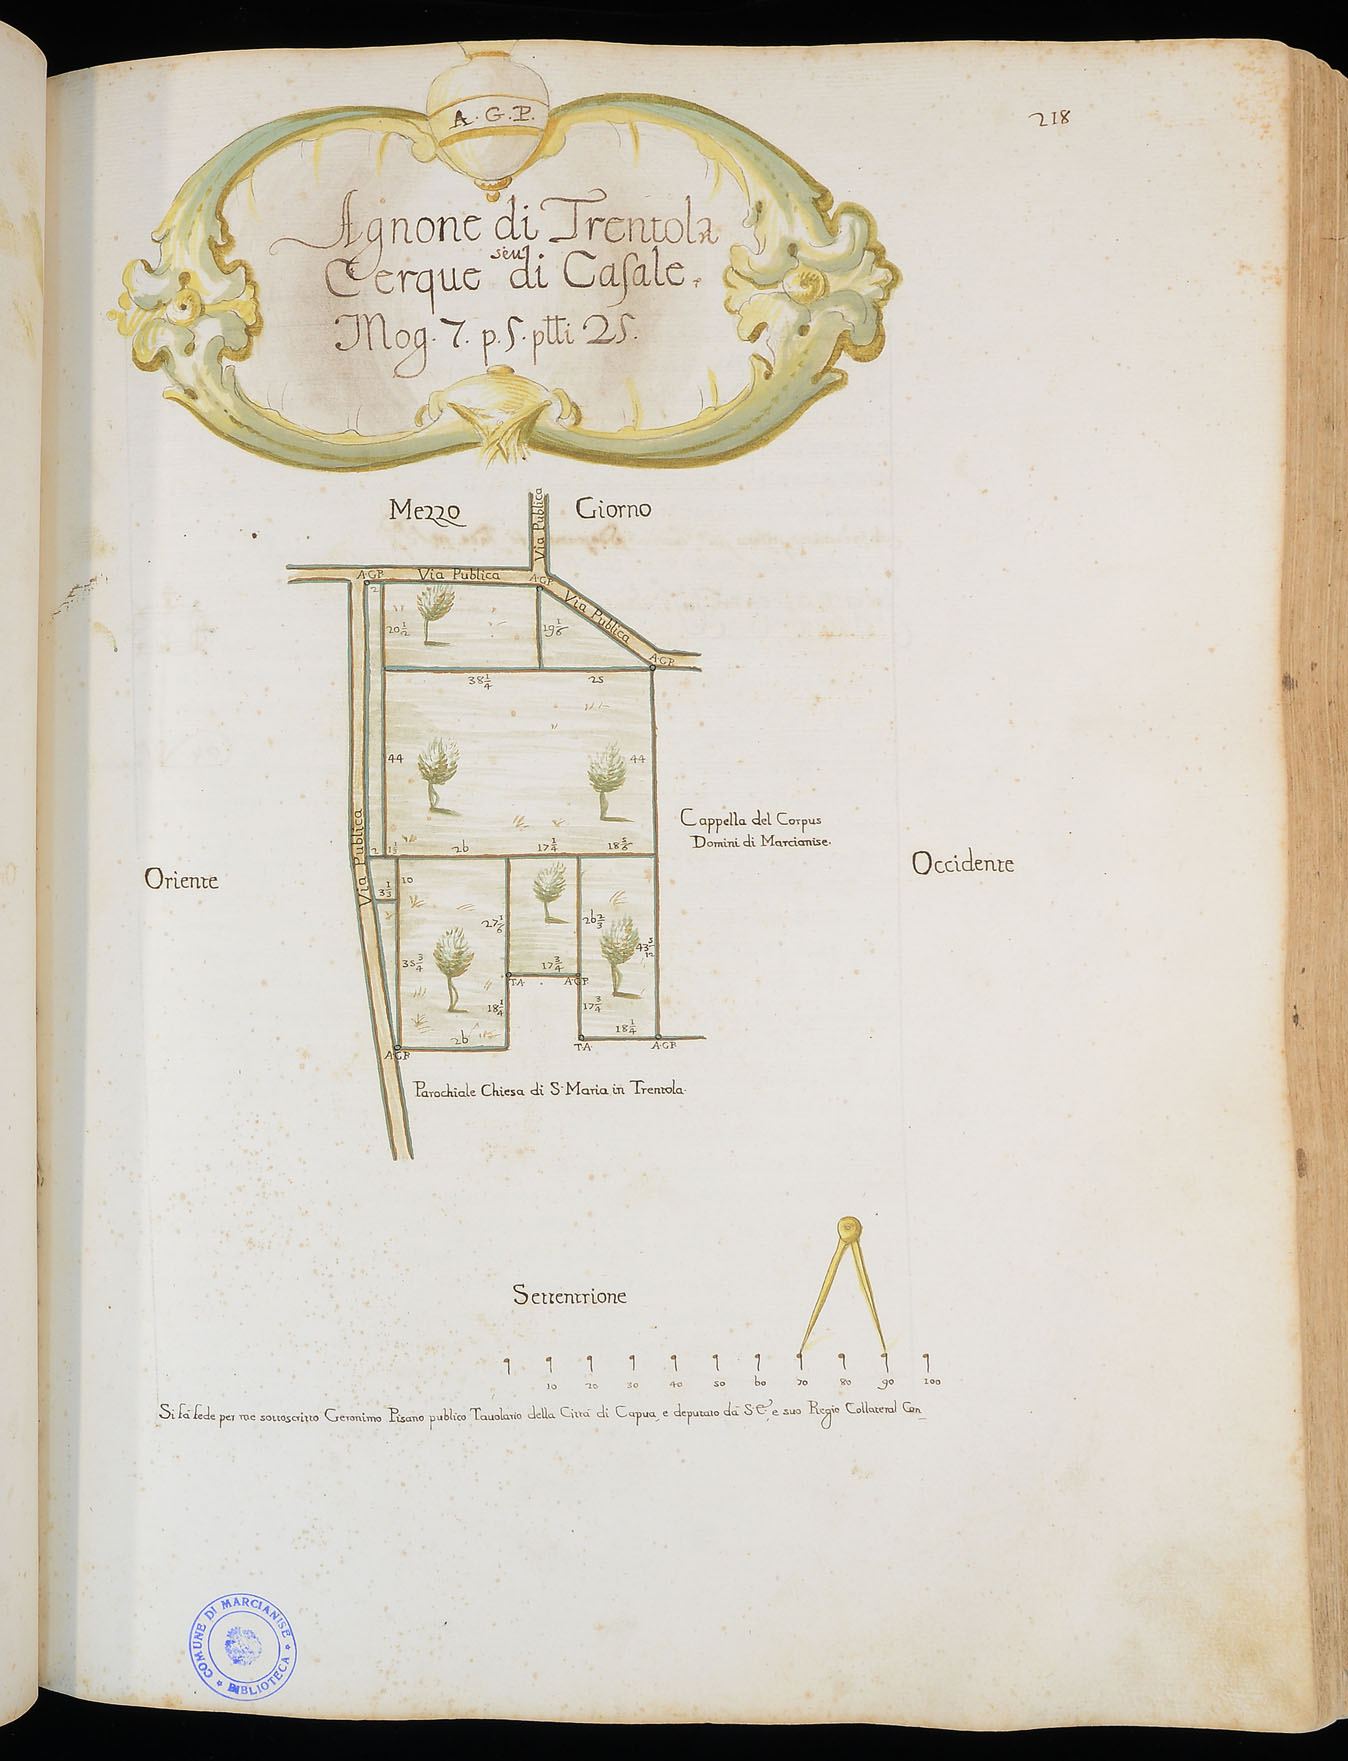 218
A. G. P.
Agnone di Trentola
seu
Cerque di Casale.
Mog. 7. p. 5. ptti 25.
Mezzo Giorno
Via Publica
A.G.P. Via Publica A.G.P.
Via Publica
A.G.P.
2
20 1/2
19 1/6
38 1/4 25
44 44
Cappella del Corpus
Domini di Marcianise.
Via Publica
2 1 1/3 26 17 1/4 18 5/6
Oriente
Occidente
3 1/3 10
27 1/6 26 2/3
43 5/12
35 3/4 17 3/4
T.A. A.G.P.
18 1/4 17 3/4
18 1/4
26
T.A. A.G.P.
A.G.P.
Parochiale Chiesa di S. Maria in Trentola.
Settentrione
10 20 30 40 50 60 70 80 90 100
Si fà fede per me sottoscritto Geronimo Pisano publico Tavolario della Città di Capua, e deputato dà S.E., e suo Regio Collateral Con_
COMUNE DI MARCIANISE
BIBLIOTECA